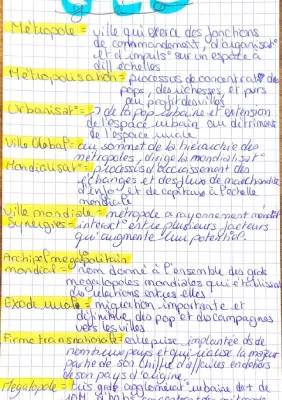 Métropole = ville qui exerce des fonctions
de commandement, d'organisat°
et d'impuls° sur un espace à
diff échelles
Métropolisation = processus de concentrat° des
pops, des richesses, et
au profit des villes
Urbanisat° = ↗ de la pop urbaine et extension
de l'espace urbain au détriment
de l'espace rural
Ville Global = au sommet de la hiérarchie des
métropoles, dirige la mondialisat°
Mondialisat° = processus d'accroissement des
échanges et des flux de marchandise
d'info et de capitaux à l'échelle
mondiale
Ville mondiale = métropole à rayonnement mondial
Synergies = interact° entre plusieurs facteurs
qui augmente leur potentiel.
Archipel megalopolitain
mondial = nom donné à l'ensemble des gds
megalopoles mondiales qui
relations entre elles
Exode rural = migration importante et
définitive des pop des campagnes
vers les villes
Firme transnationale = entreprise implantée ds de
nombreux pays et qui réalise la majeur
partie de son chiffre d'affaires en dehors
de son pays d'origine.
Megalopole = très grde agglomérat° urbaine de + de